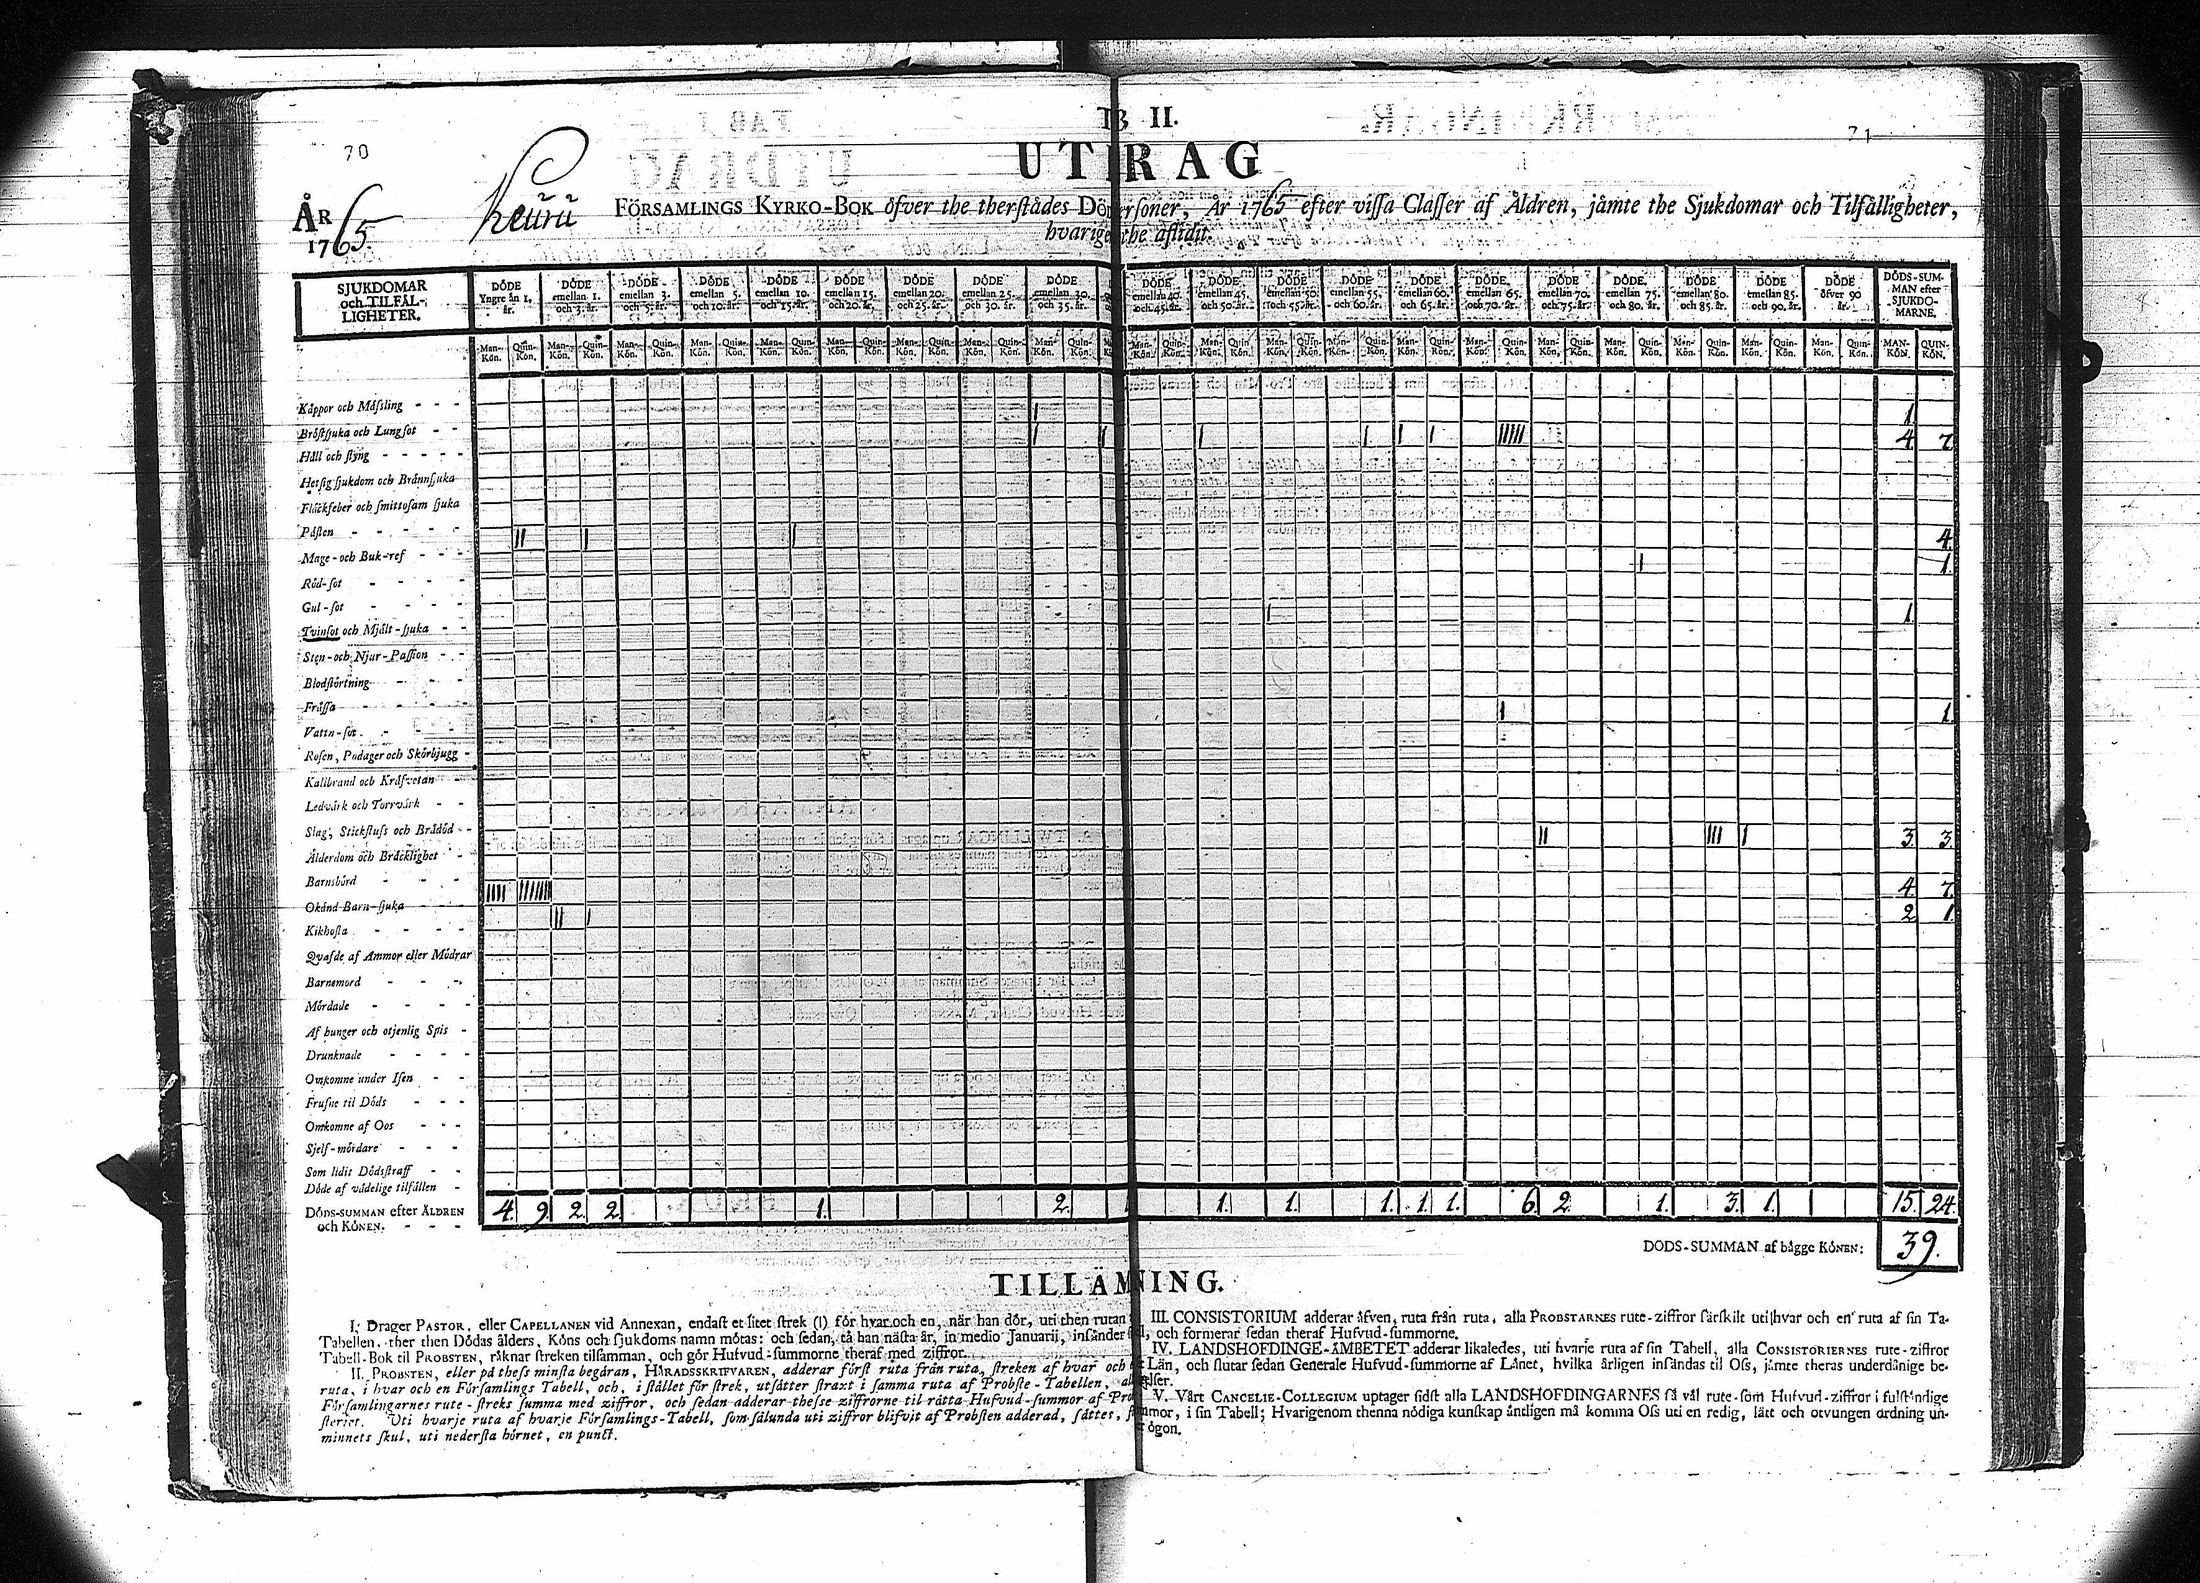 70
71
B II.
UT RAG
ÅR 1765.
Keuru FÖRSAMLINGS KYRKO-BOK öfver the therstädes Dö ersoner, År 1765 efter vissa Classer af Åldren, jämte the Sjukdomar och Tilfälligheter,
hvarige the aflidit.
SJUKDOMAR och TILFÄL-LIGHETER.
DÖDE Yngre än 1. år.
DÖDE emellan 1. och 3. år.
DÖDE emellan 3. och 5. år.
DÖDE emellan 5. och 10. år.
DÖDE emellan 10. och 15. år.
DÖDE emellan 15. och 20. år.
DÖDE emellan 20. och 25. år.
DÖDE emellan 25. och 30. år.
DÖDE emellan 30. och 35. år.
DÖDE emellan 40. och 45. år.
DÖDE emellan 45. och 50. år.
DÖDE emellan 50. och 55. år.
DÖDE emellan 55. och 60. år.
DÖDE emellan 60. och 65. år.
DÖDE emellan 65. och 70. år.
DÖDE emellan 70. och 75. år.
DÖDE emellan 75. och 80. år.
DÖDE emellan 80. och 85. år.
DÖDE emellan 85. och 90. år.
DÖDE öfver 90 år.
DÖDS-SUM-MAN efter SJUKDO-MARNE.
Man-Kön. Quin-Kön. Man-Kön. Quin-Kön. Man-Kön. Quin-Kön. Man-Kön. Quin-Kön. Man-Kön. Quin-Kön. Man-Kön. Quin-Kön. Man-Kön. Quin-Kön. Man-Kön. Quin-Kön. Man-Kön. Quin-Kön. Man-Kön. Quin-Kön. Man-Kön. Quin-Kön. Man-Kön. Quin-Kön. Man-Kön. Quin-Kön. Man-Kön. Quin-Kön. Man-Kön. Quin-Kön. Man-Kön. Quin-Kön. Man-Kön. Quin-Kön. Man-Kön. Quin-Kön. Man-Kön. Quin-Kön. Man-Kön. Quin-Kön. MAN-KÖN. QUIN-KÖN.
Kåppor och Mäsling - - - | 1
Bröstsjuka och Lungsot - - | | | | | | |||||| 4. 7.
Håll och styng - - - - -
Hetsig sjukdom och Brännsjuka
Fläckfeber och smittosam sjuka
Påsten - - - - - || | | 4.
Mage-och Buk-ref - - - | 1.
Röd-sot - - - -
Gul-sot - - - - | 1.
Tvinsot och Mjält-sjuka - -
Sten-och Njur-Passion - -
Blodstörtning - - -
Frässa - - - - | 1.
Vattn-sot. - - -
Rosen, Podager och Skörbjugg -
Kallbrand och Kräfvetan -
Ledvärk och Torrvärk - -
Slag, Stickfluss och Brådöd - - || ||| | 3. 3.
Ålderdom och Bräcklighet -
Barnsbörd - - - |||| ||||||| 4. 7.
Okänd Barn-sjuka - - - || | 2 1.
Kikhosta - - - -
Qvafde af Ammor eller Mödrar
Barnemord - - -
Mördade - - - -
Af hunger och otjenlig Spis -
Drunknade - - - -
Omkomne under Isen - -
Frusne til Döds - - -
Omkomne af Oos - - -
Sjelf-mördare - - -
Som lidit Dödsstraff - -
Döde af vådelige tilfällen -
DÖDS-SUMMAN efter ÅLDREN och KÖNEN. - - - 4. 9. 2. 2. 1. 2. 1. 1. 1. 1. 1. 6. 2. 1. 3. 1. 15. 24.
DÖDS-SUMMAN af bägge KÖNEN: 39.
TILLÄM NING.
I. Drager PASTOR, eller CAPELLANEN vid Annexan, endast et litet strek (|) för hvar och en, när han dör, uti then rutan
Tabellen, ther then Dödas ålders, Köns och sjukdoms namn mötas: och sedan, tå han nästa år, in medio Januarii, insänder
Tabell-Bok til PROBSTEN, räknar streken tilsamman, och gör Hufvud-summorne theraf med ziffror.
II. PROBSTEN, eller på thess minsta begäran, HÄRADSSKRIFVAREN, adderar först ruta från ruta, streken af hvar och
ruta, i hvar och en Församlings Tabell, och, i stället för strek, utsätter straxt i samma ruta af Probste-Tabellen,
Församlingarnes rute-streks summa med ziffror, och sedan adderar thesse ziffrorne til rätta Hufvud-summor af
steriet. Uti hvarje ruta af hvarje Församlings-Tabell, som sålunda uti ziffror blifvit af Probsten adderad, sättes,
minnets skul, uti nedersta hörnet, en punct.
III. CONSISTORIUM adderar äfven, ruta från ruta, alla PROBSTARNES rute-ziffror särskilt uti hvar och en ruta af sin Ta-
och formerar sedan theraf Hufvud-summorne.
IV. LANDSHÖFDINGE-ÄMBETET adderar likaledes, uti hvarje ruta af sin Tabell, alla CONSISTORIERNES rute-ziffror
Län, och slutar sedan Generale Hufvud-summorne af Länet, hvilka årligen insändas til Oss, jämte theras underdånige be-
elser.
V. Vårt CANCELIE-COLLEGIUM uptager sidst alla LANDSHÖFDINGARNES så väl rute-som Hufvud-ziffror i fulständige
mor, i sin Tabell; Hvarigenom thenna nödiga kunskap äntligen må komma Oss uti en redig, lätt och otvungen ordning un-
ögon.